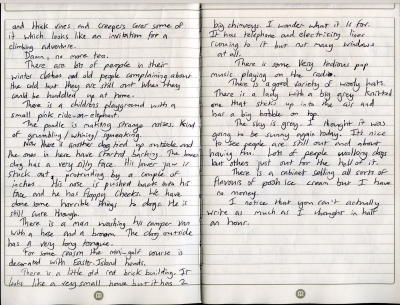 and thick vines and creepers cover some of
it which looks like an invitation for a
climbing adventure.
Damn, no more tea.
There are lots of people in their
winter clothes and old people complaining about
the cold but they are still out when they
could be huddled up at home.
There is a childrens playground with a
small pink ride-on-elephant.
The poodle is making strange noises. Kind
of grumbling / whining / squeaking.
Now there is another dog tied up outside and
the ones in here have started barking. The
dog has a very silly face. His lower jaw is
stuck out, protruding by a couple of
inches. His nose is pushed back into his
face, and he has floppy cheeks. We have
done some horrible things to dogs. He is
still cute though.
There is a man washing his camper van
with a hose and a broom. The dog outside
has a very long tongue.
For some reason the mini-golf course is
decorated with Easter-Island heads.
There is a little old red brick building. It
looks like a very small house but it has 2
big chimneys. I wonder what it is for.
It has telephone and electricity lines
running to it but not many windows
at all.
There is some very tedious pop
music playing on the radio.
There is a good variety of wooly hats.
There is a lady with a big grey knitted
one that sticks up into the air and
has a big bobble on top.
The sky is grey. I thought it was
going to be sunny again today. It's nice
to see people are still out and about
having fun. Lots of people walking dogs
but others just out for the hell of it.
There is a cabinet selling all sorts of
flavours of posh ice cream but I have
no money.
I notice that you can't actually
write as much as I thought in half
an hour.